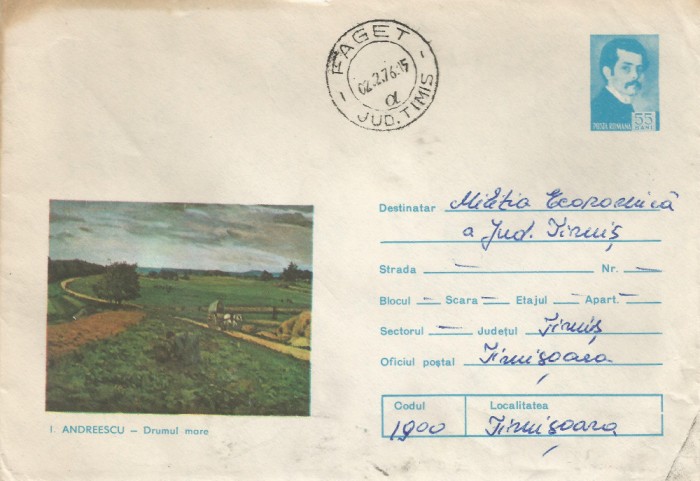 FAGET
02.2.76.15
α
JUD. TIMIS
POSTA ROMANA 55 BANI
Destinatar Miliția Economică
a Jud. Timiș
Strada — Nr. —
Blocul — Scara — Etajul — Apart. —
Sectorul — Județul Timiș
Oficiul poștal Timișoara
Codul Localitatea
1900 Timișoara
I. ANDREESCU – Drumul mare